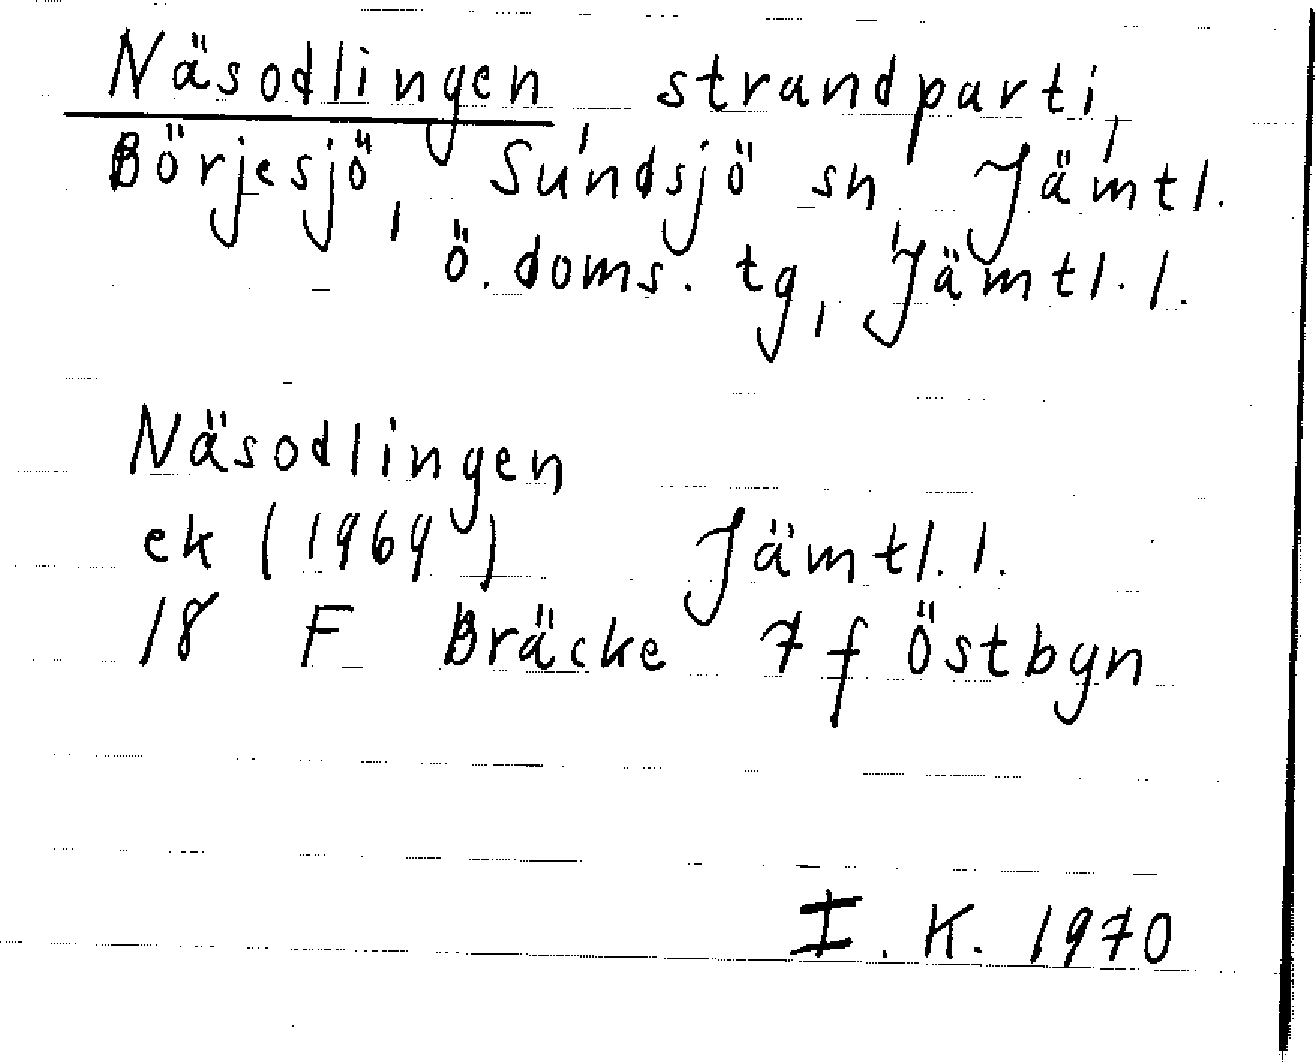 Näsodlingen, strandparti,
Börjesjö, Sundsjö sn, Jämtl.
ö. doms. tg, Jämtl. l.
Näsodlingen
ek (1969) Jämtl. l.
18 F Bräcke 7 f Östbyn
I. K. 1970